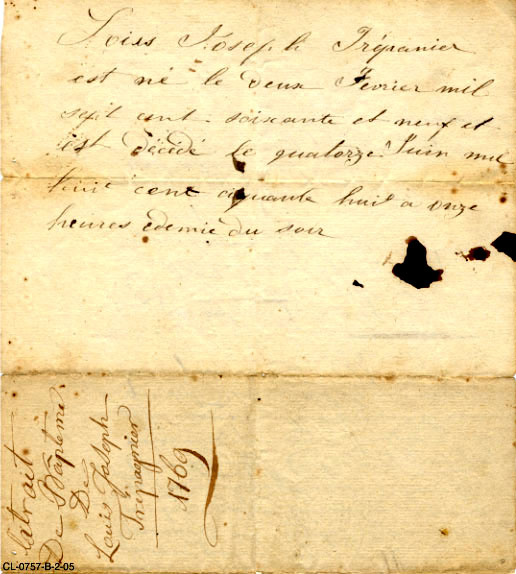 Loiss Joseph Trépanier
est né le deux Fevrier mil
sept cent soixante et neuf et
est décidé le quatorze Juin mil
huit cent cinquante huit a onze
heures edemie du soir
Extrait
De Baptême
De
Louis Joseph
Trepagnier
1769
CL-0757-B-2-05